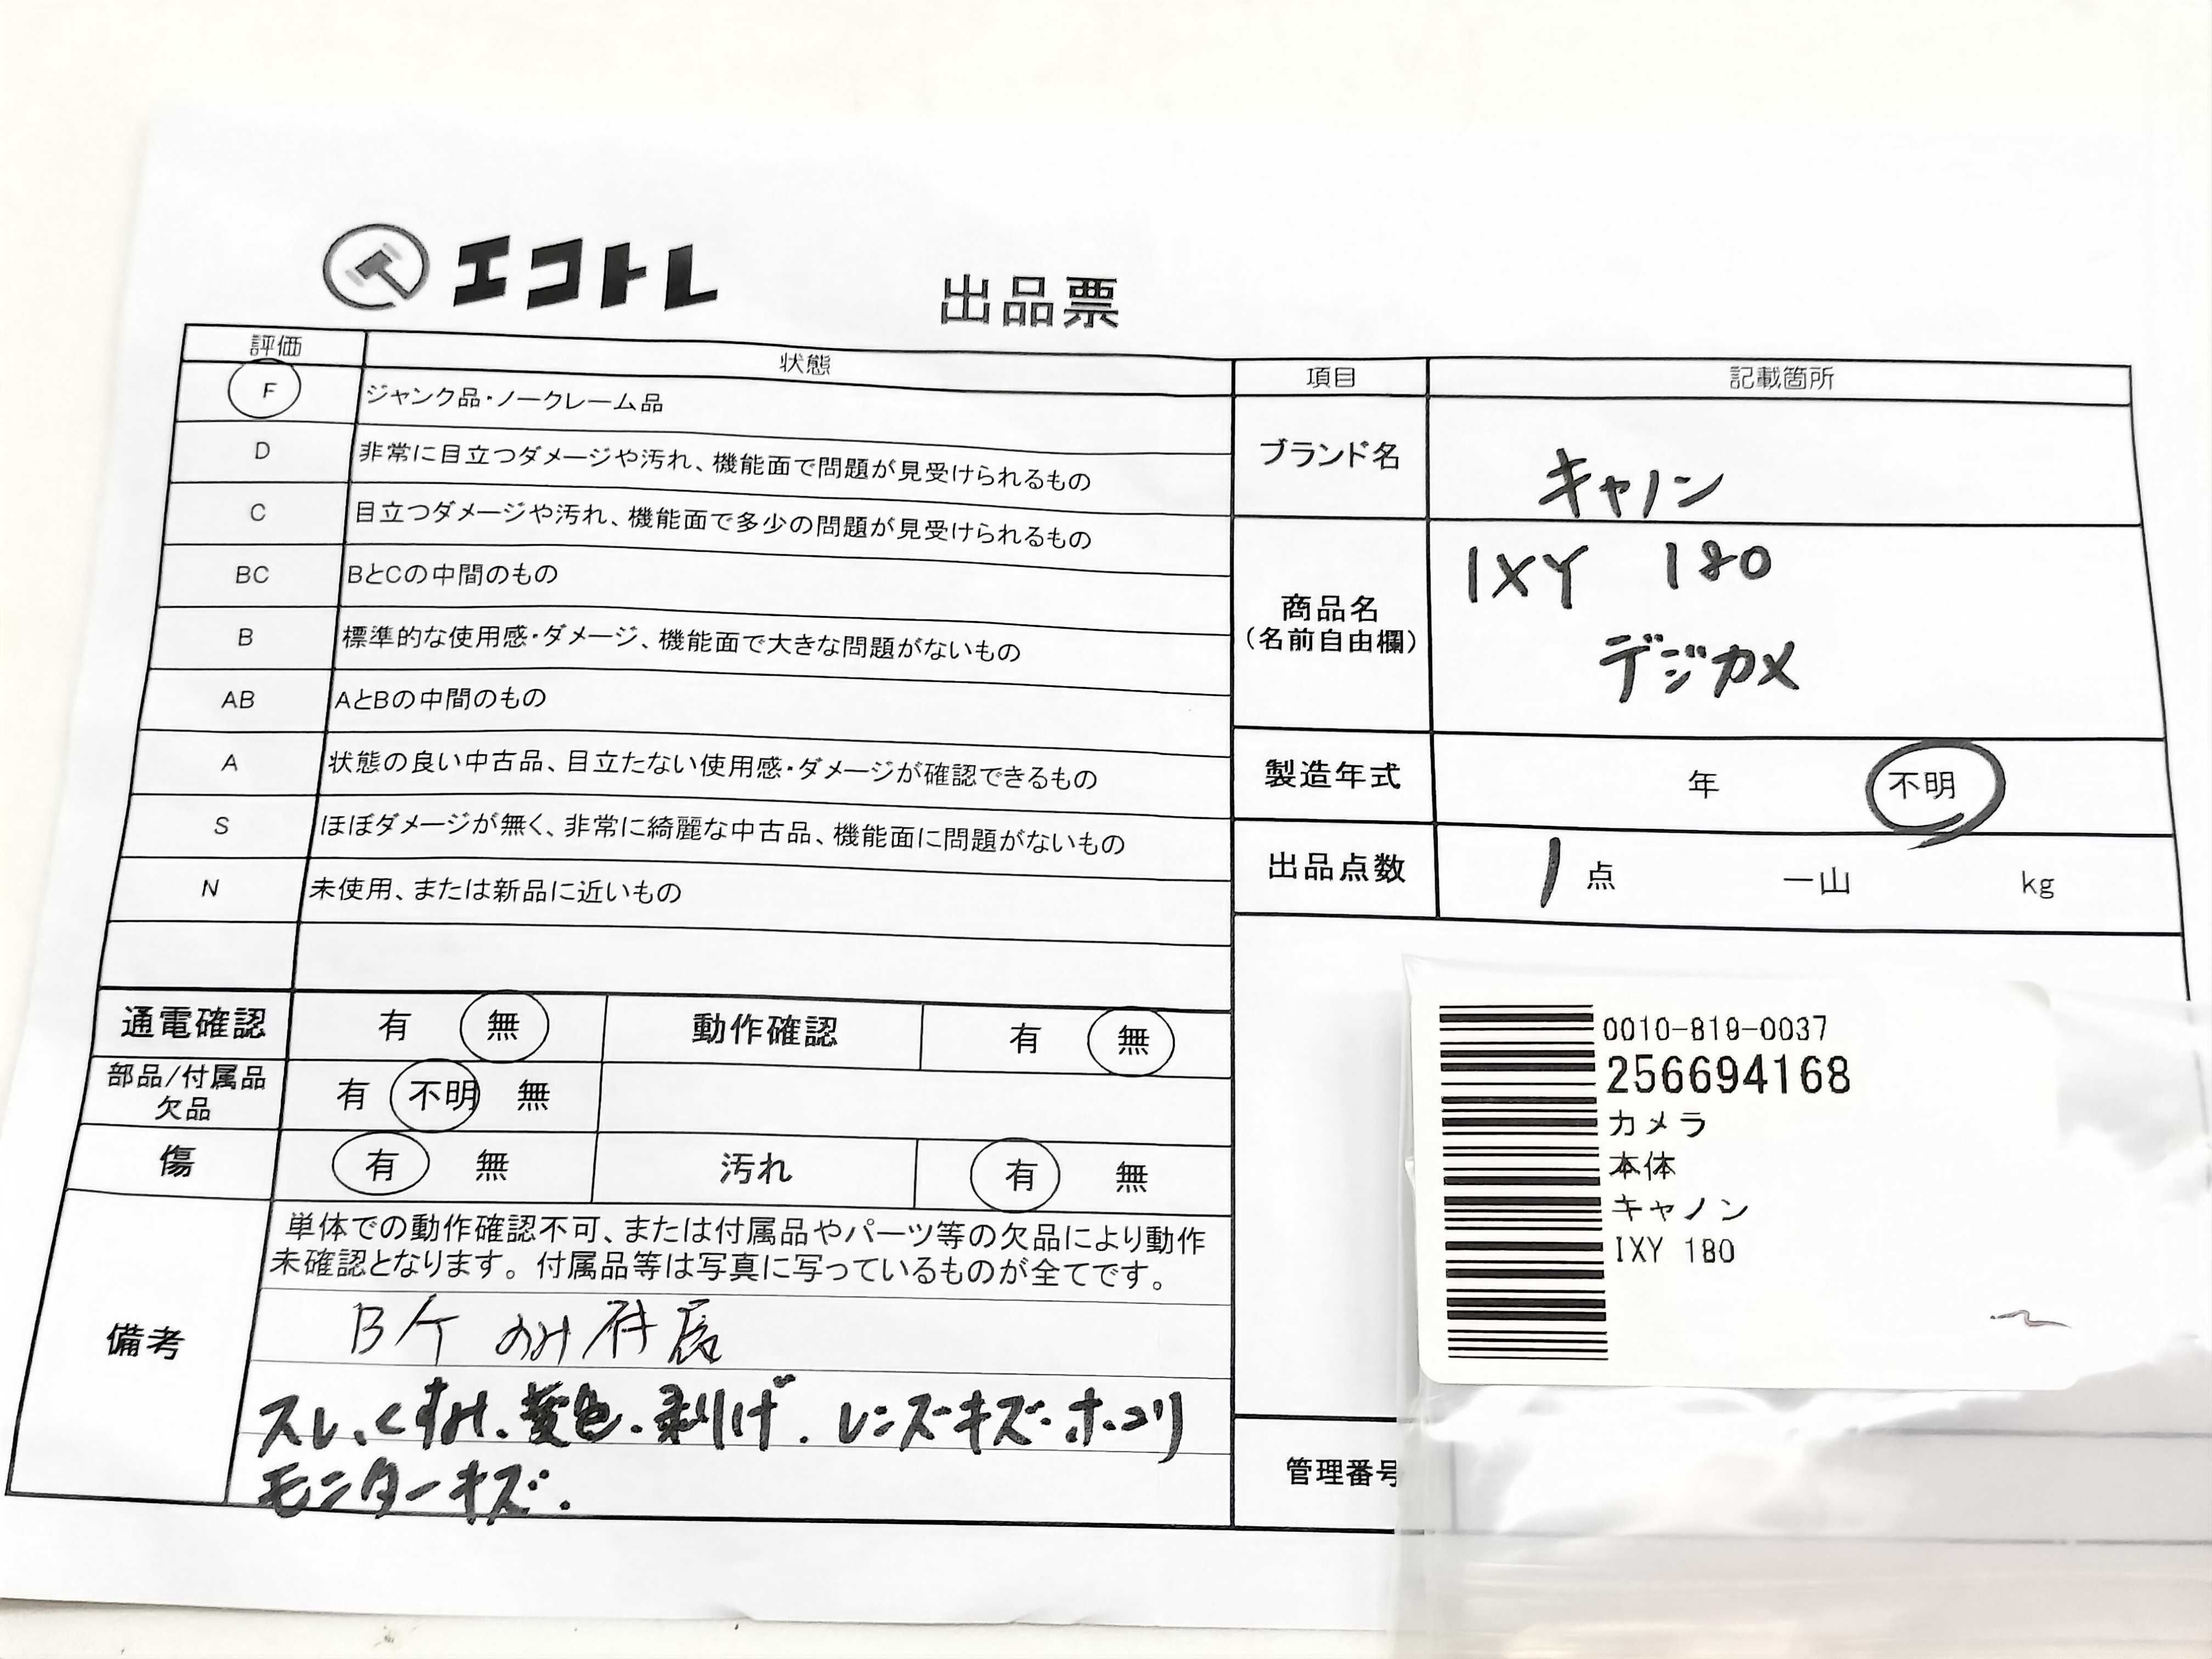 エコトレ
出品票
評価 状態
F ジャンク品・ノークレーム品
D 非常に目立つダメージや汚れ、機能面で問題が見受けられるもの
C 目立つダメージや汚れ、機能面で多少の問題が見受けられるもの
BC BとCの中間のもの
B 標準的な使用感・ダメージ、機能面で大きな問題がないもの
AB AとBの中間のもの
A 状態の良い中古品、目立たない使用感・ダメージが確認できるもの
S ほぼダメージが無く、非常に綺麗な中古品、機能面に問題がないもの
N 未使用、または新品に近いもの
通電確認 有 無 動作確認 有 無
部品/付属品
欠品
有 不明 無
傷 有 無 汚れ 有 無
備考
単体での動作確認不可、または付属品やパーツ等の欠品により動作
未確認となります。付属品等は写真に写っているものが全てです。
Bケ のみ付属
スレ、くすみ、変色、剥げ、レンズキズ・ホコリ
モニターキズ.
項目 記載箇所
ブランド名 キャノン
商品名
(名前自由欄)
IXY 180
デジカメ
製造年式 年 不明
出品点数 1点 一山 kg
管理番号
0010-819-0037
256694168
カメラ
本体
キャノン
IXY 180